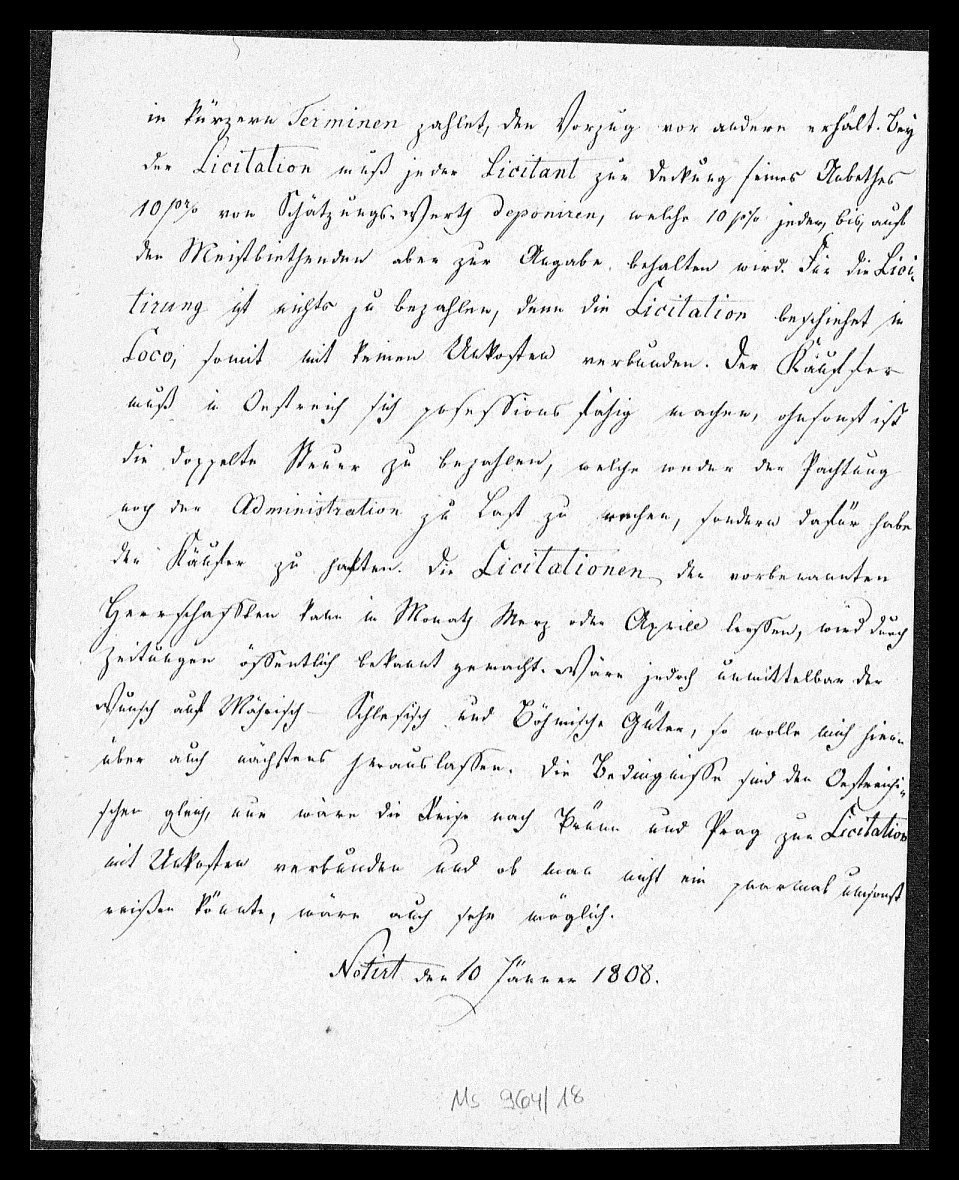 in kürzern Terminen zahlet, den Vorzug vor andern erhält. Bey
der Licitation muß jeder Licitant zur Deckung seines Anbothes
10 pr% von Schätzungs-Werth deponiren, welche 10 pr% jeder, bis auf
den Meistbiethenden aber zur Angabe behalten wird. Für die Lici-
tirung ist nichts zu bezahlen, denn die Licitation beschiehet in
Loco, somit mit keinen Unkosten verbunden. Der Käuffer
muß in Oestreich sich possessions fähig machen, ohnsonst ist
die doppelte Steuer zu bezahlen, welche weder der Pachtung
noch der Administration zu Last zu rechen, sondern dafür habe
der Käufer zu haften. Die Licitationen der vorbenannten
Herrschafften kann in Monath Merz oder Aprill
wird durch
Zeitungen öffentlich bekannt gemacht. Wäre jedoch unmittelbar der
Wunsch auf Mährisch- Schlesisch und Böhmische Güter, so wolle mich hierin
über auch nächstens herauslassen. Die Bedingnisse sind den Oestreichi-
schen gleich, nur wäre die Reise nach Brünn und Prag zur Licitation
mit Unkosten verbunden und ob man nicht ein paarmal umsonst
reißen könnte, wäre auch sehr möglich.
Notirt den 10 Jänner 1808.
Ms 964/18